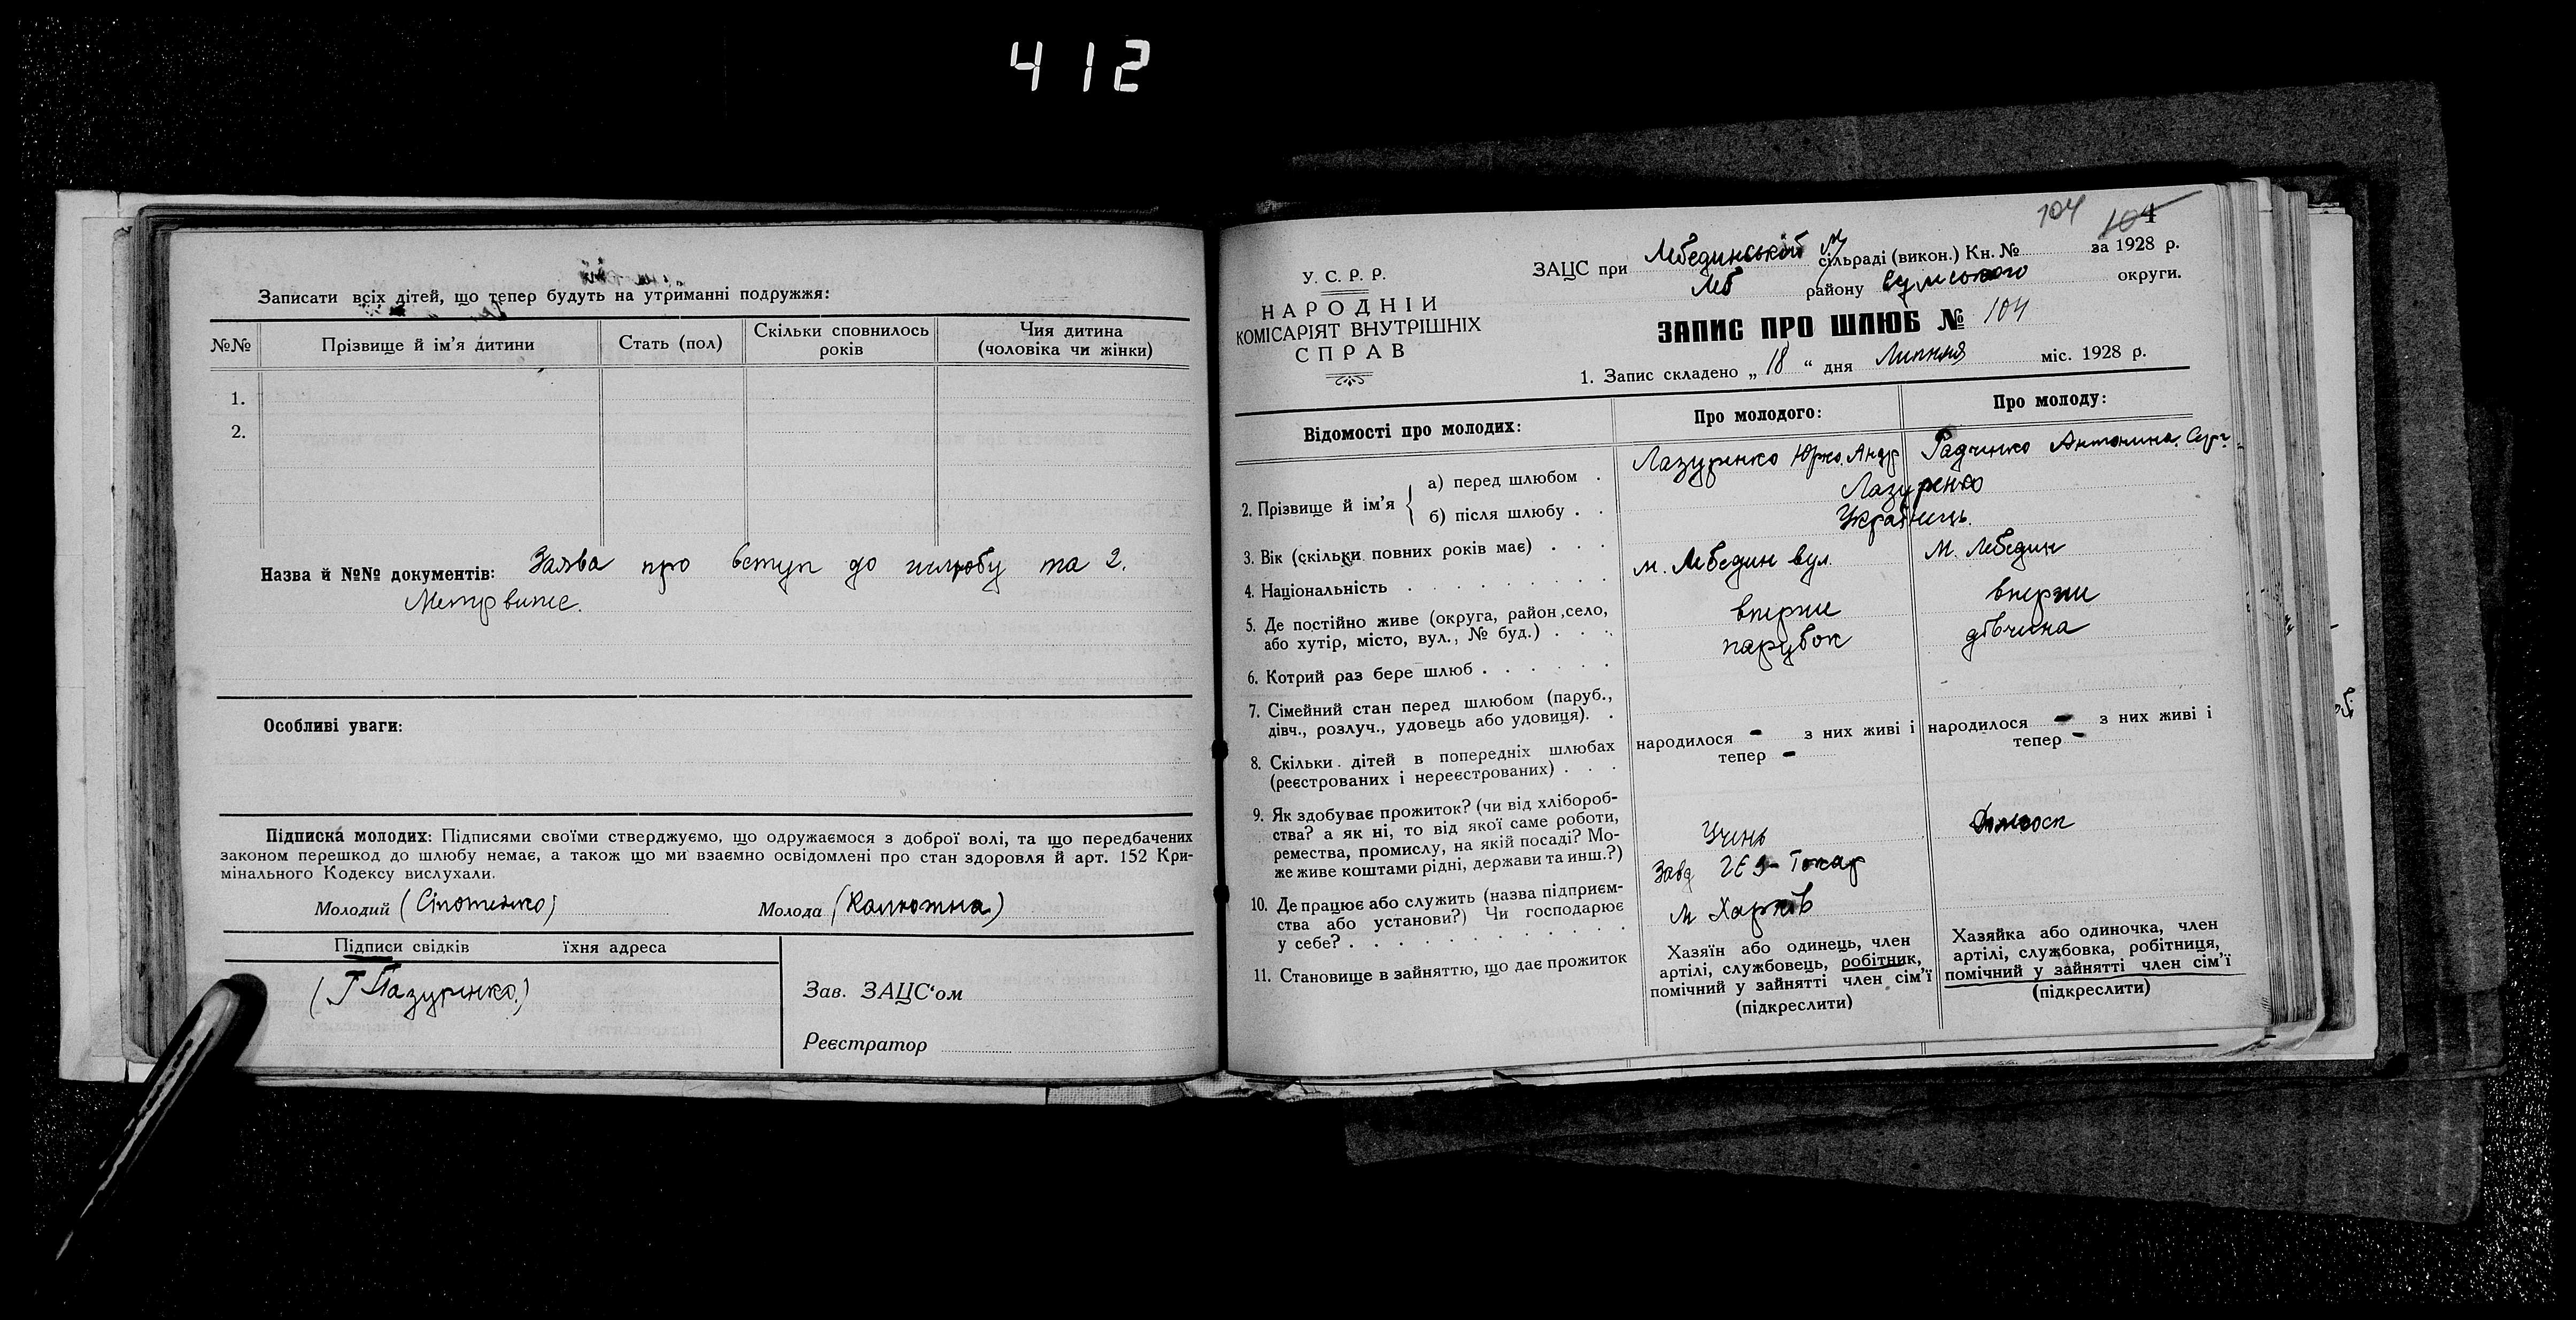 412
Записати всіх дітей, що тепер будуть на утриманні подружжя:
№№ Прізвище й ім'я дитини Стать (пол) Скільки сповнилось років Чия дитина (чоловіка чи жінки)
1.
2.
Назва й №№ документів: Заява про вступ до шлюбу та 2.
Особливі уваги:
Підписка молодих: Підписями своїми стверджуємо, що одружаємося з доброї волі, та що передбачених
законом перешкод до шлюбу немає, а також що ми взаємно освідомлені про стан здоровля й арт. 152 Кри-
мінального Кодексу вислухали.
Молодий Молода (Калюжна)
Підписи свідків їхня адреса
(Г Лазуренко)
Зав. ЗАЦС'ом
Реєстратор
104 104
У. С. Р. Р.
НАРОДНІЙ
КОМІСАРІЯТ ВНУТРІШНІХ
СПРАВ
ЗАЦС при Лебединській м/сільраді (викон.) Кн. № за 1928 р.
Леб району Сумського округи.
ЗАПИС ПРО ШЛЮБ № 104
1. Запис складено „ 18 “ дня Липня міс. 1928 р.
Відомості про молодих: Про молодого: Про молоду:
2. Прізвище й ім'я { а) перед шлюбом . Лазуренко Юрко. Андр Радченко Антонина. Серг.
б) після шлюбу . . Лазуренко
3. Вік (скільки повних років має) . . .
4. Національність . . . . . . . . Українець.
5. Де постійно живе (округа, район, село,
або хутір, місто, вул., № буд.) . . . м. Лебедин вул. М. Лебедин
6. Котрий раз бере шлюб . . . . . . вперше вперше
7. Сімейний стан перед шлюбом (паруб.,
дівч., розлуч., удовець або удовиця). . парубок дівчина
8. Скільки дітей в попередніх шлюбах
(реєстрованих і нереєстрованих) . . .
народилося - з них живі і тепер -
народилося - з них живі і тепер -
9. Як здобуває прожиток? (чи від хлібороб-
ства? а як ні, то від якої саме роботи,
ремества, промислу, на якій посаді? Мо-
же живе коштами рідні, держави та инш.?)
Учень
Домгосп
10. Де працює або служить (назва підприєм-
ства або установи?) Чи господарює
у себе? . . . . . . . . . . . .
Завд ГЕЗ - Токар
м Харків
11. Становище в зайняттю, що дає прожиток
Хазяїн або одинець, член
артілі, службовець, робітник,
помічний у зайнятті член сім'ї
(підкреслити)
Хазяйка або одиночка, член
артілі, службовка, робітниця,
помічний у зайнятті член сім'ї
(підкреслити)